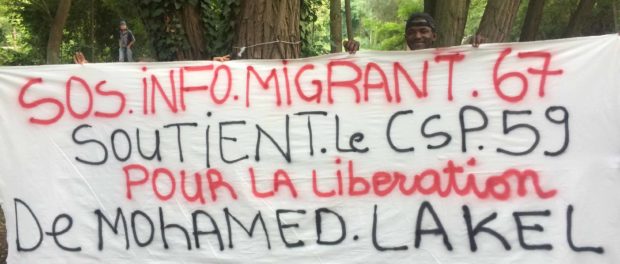 SOS.iNFO.MiGRANT.67
SOUTiENT.Le CSP.59
POUR LA LiBeRATiON
De MOhAMED.LAKEL